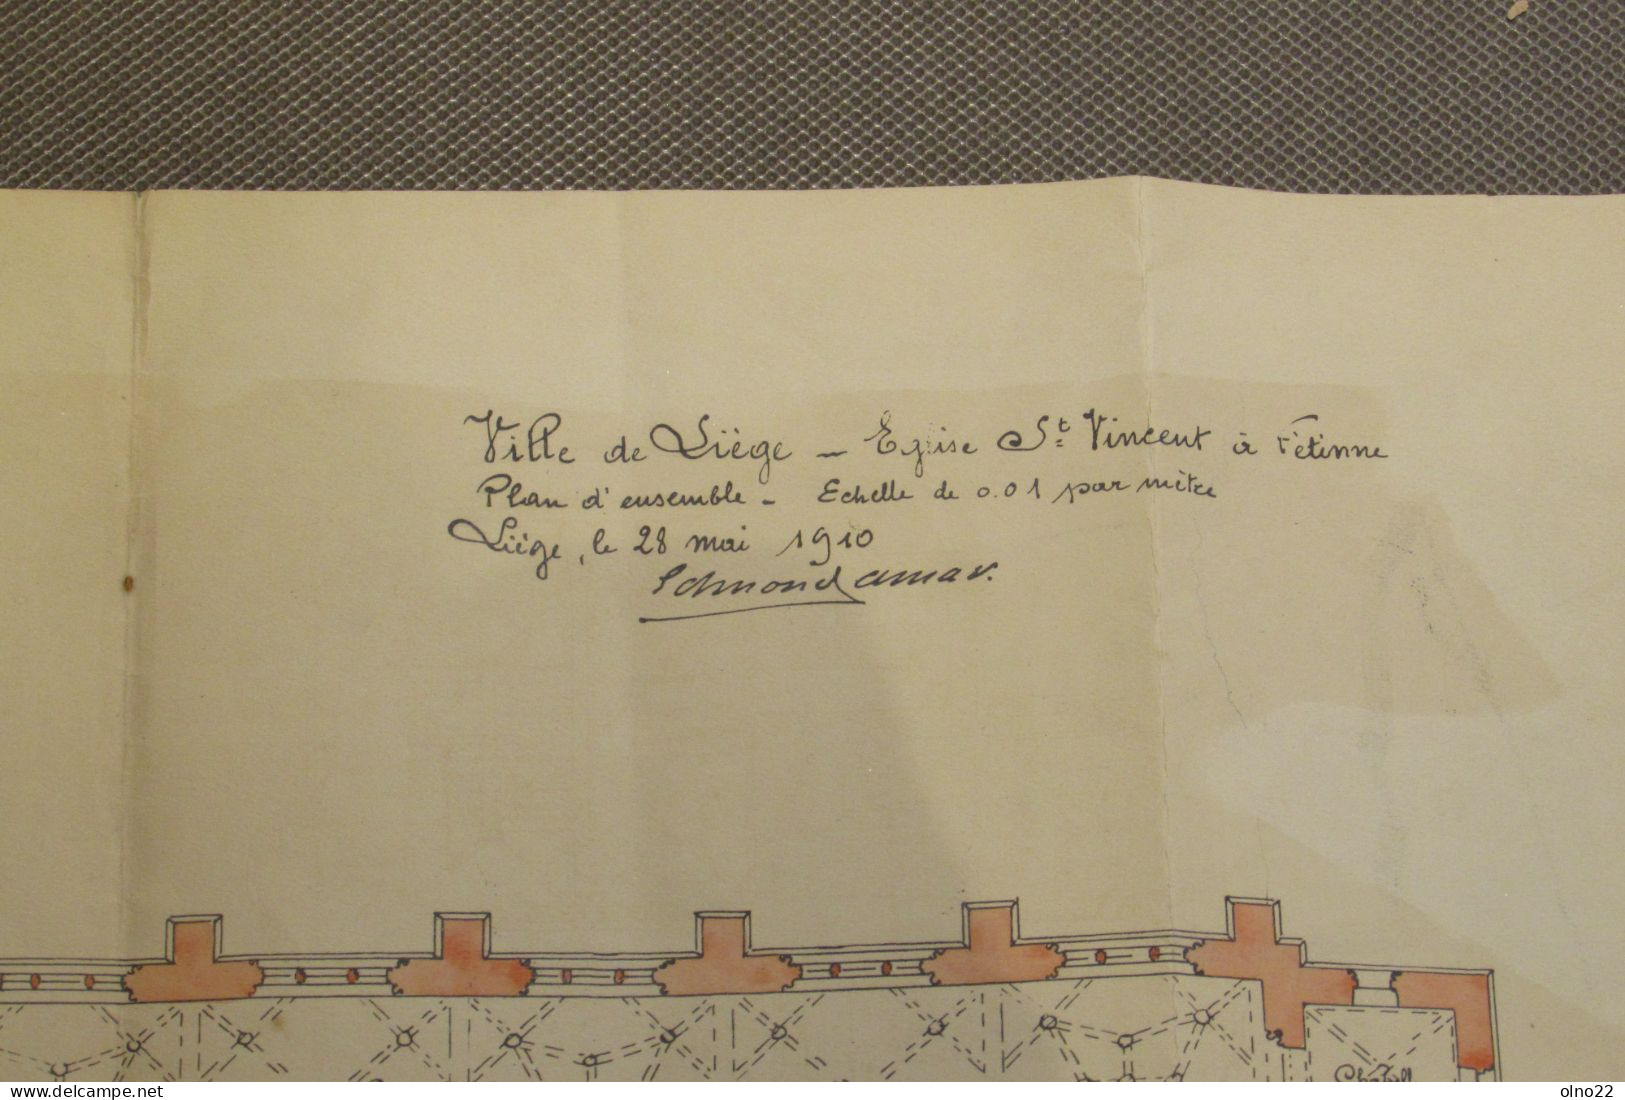 Ville de Liège - Eglise St Vincent à Fétinne
Plan d'ensemble - Echelle de 0.01 par mètre
Liège, le 28 mai 1910
Edmond Jamar.
www.delcampe.net
olno22